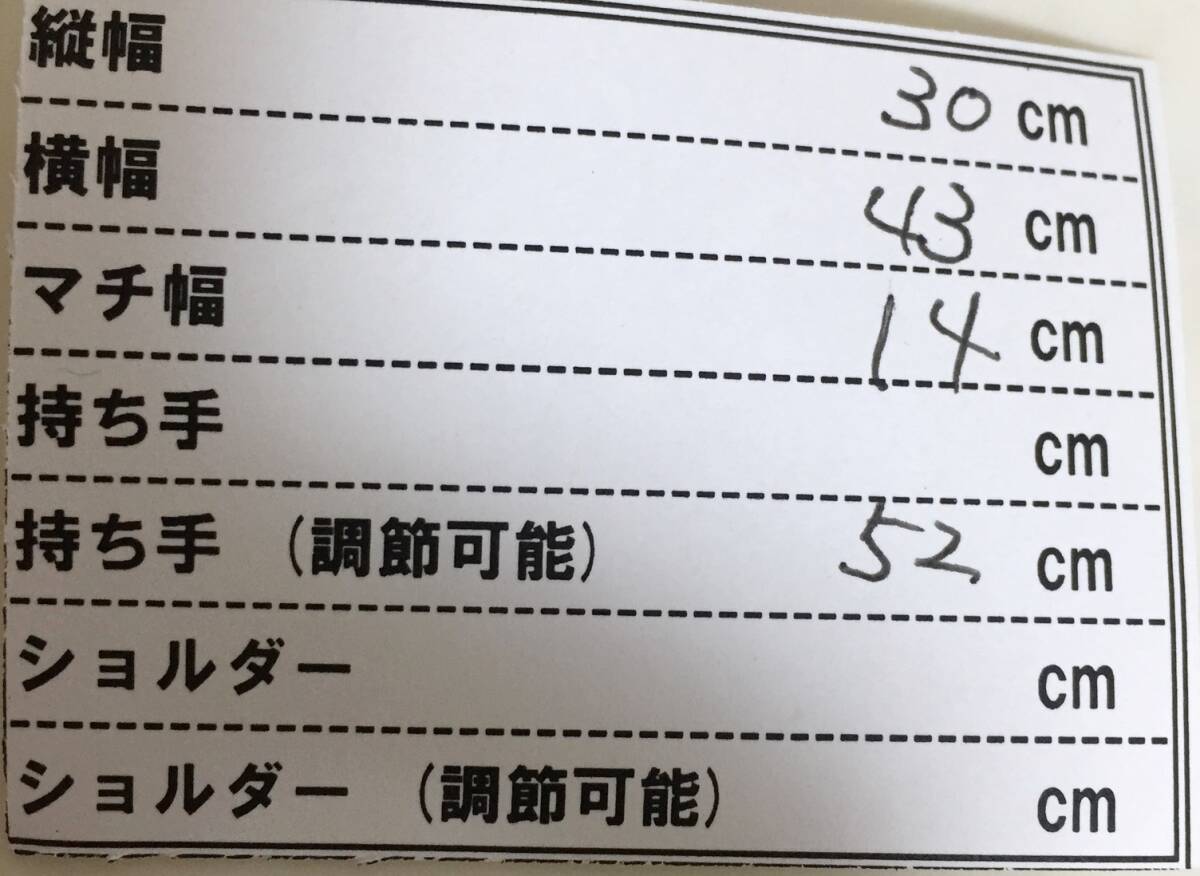 縦幅 30 cm
横幅 43 cm
マチ幅 14 cm
持ち手 cm
持ち手 (調節可能) 52 cm
ショルダー cm
ショルダー (調節可能) cm